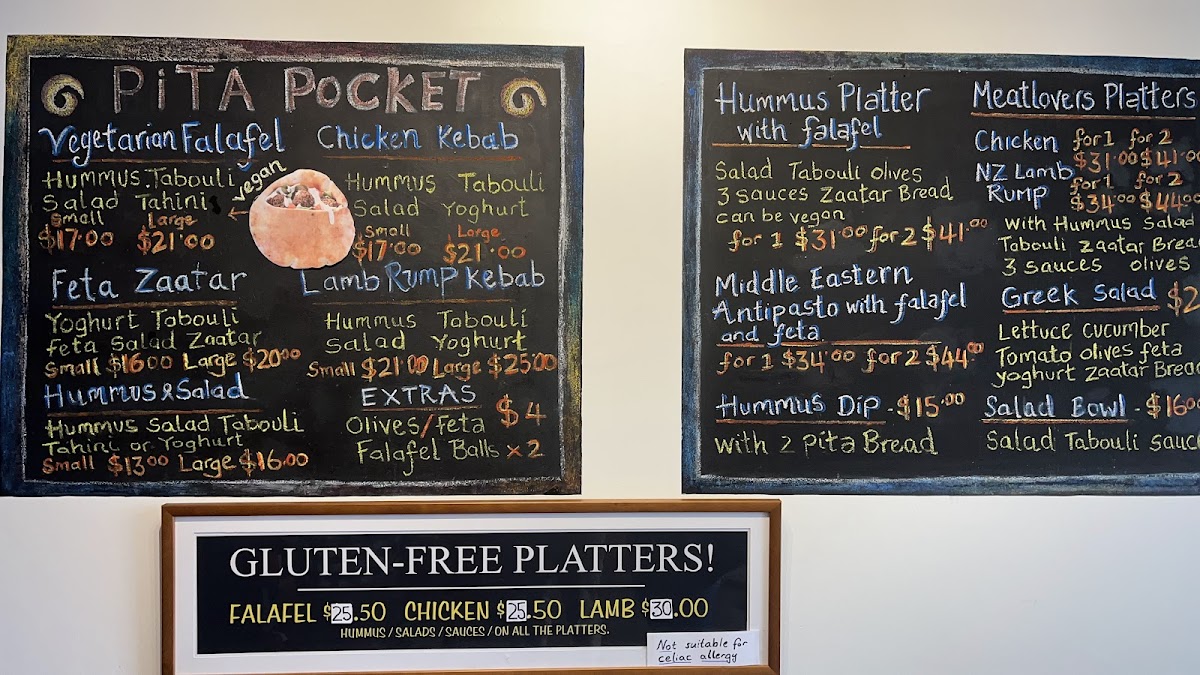 PiTA POCKET
Vegetarian Falafel
vegan
Hummus. Tabouli
Salad Tahini
Small Large
$17.00 $21.00
Chicken Kebab
Hummus Tabouli
Salad Yoghurt
Small Large
$17.00 $21.00
Feta Zaatar
Yoghurt Tabouli
feta Salad Zaatar
Small $16.00 Large $20.00
Lamb Rump Kebab
Hummus Tabouli
Salad Yoghurt
Small $21.00 Large $25.00
Hummus & Salad
Hummus Salad Tabouli
Tahini or Yoghurt
Small $13.00 Large $16.00
EXTRAS
Olives/feta $4
Falafel Balls x 2
Hummus Platter
with falafel
Salad Tabouli olives
3 sauces Zaatar Bread
can be vegan
for 1 $31.00 for 2 $41.00
Middle Eastern
Antipasto with falafel
and feta
for 1 $34.00 for 2 $44.00
Hummus Dip - $15.00
with 2 Pita Bread
Meatlovers Platters
Chicken for 1 for 2
$31.00 $41.00
NZ Lamb for 1 for 2
Rump $34.00 $44.00
with Hummus Salad
Tabouli Zaatar Bread
3 sauces olives
Greek Salad $2
Lettuce cucumber
Tomato olives feta
yoghurt Zaatar Bread
Salad Bowl - $16.00
Salad Tabouli sauc
GLUTEN-FREE PLATTERS!
FALAFEL $25.50 CHICKEN $25.50 LAMB $30.00
HUMMUS / SALADS / SAUCES / ON ALL THE PLATTERS.
Not suitable for
celiac allergy